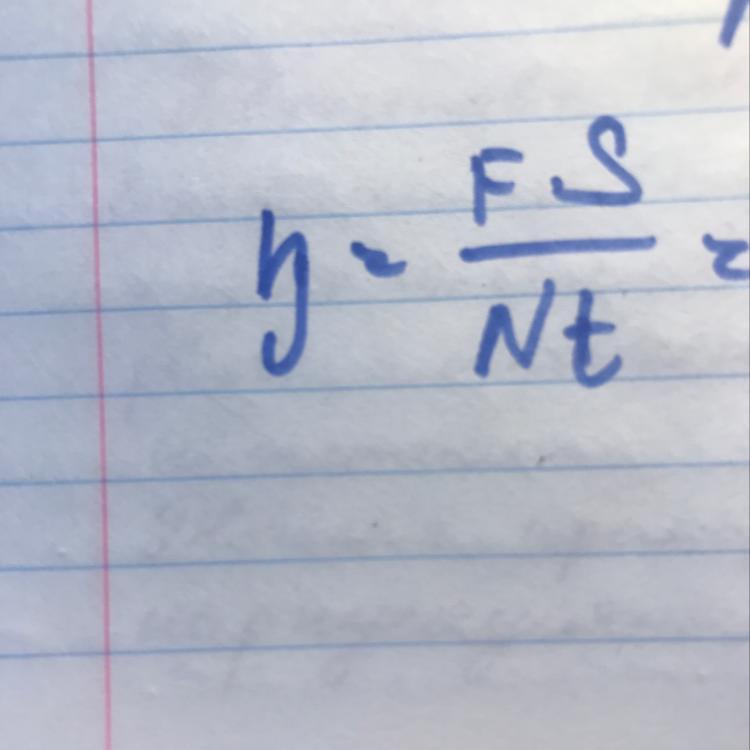 η = FS / Nt =